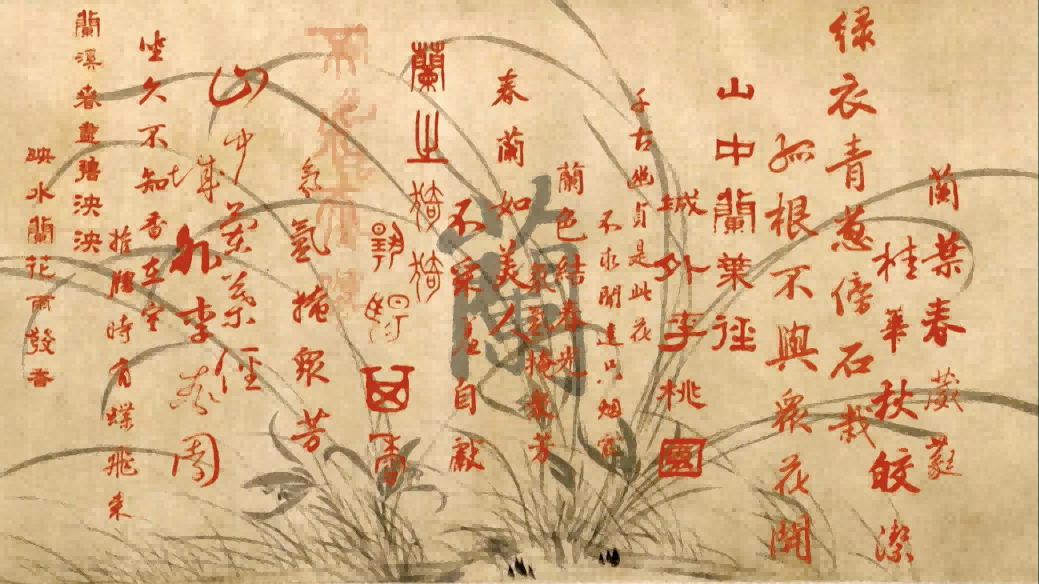 蘭葉春葳蕤
桂華秋皎潔
綠衣青葱傍石栽
孤根不與眾花開
山中蘭葉徑
城外李桃園
千古幽貞是此花
不求聞達只烟霞
蘭色結春光
氛氳掩眾芳
春蘭如美人
不采羞自獻
蘭之猗猗
山中蘭葉徑
城外李桃園
氛氳掩眾芳
坐久不知香在室
推窗時有蝶飛來
蘭溪春盡碧泱泱
映水蘭花雨發香
蘭